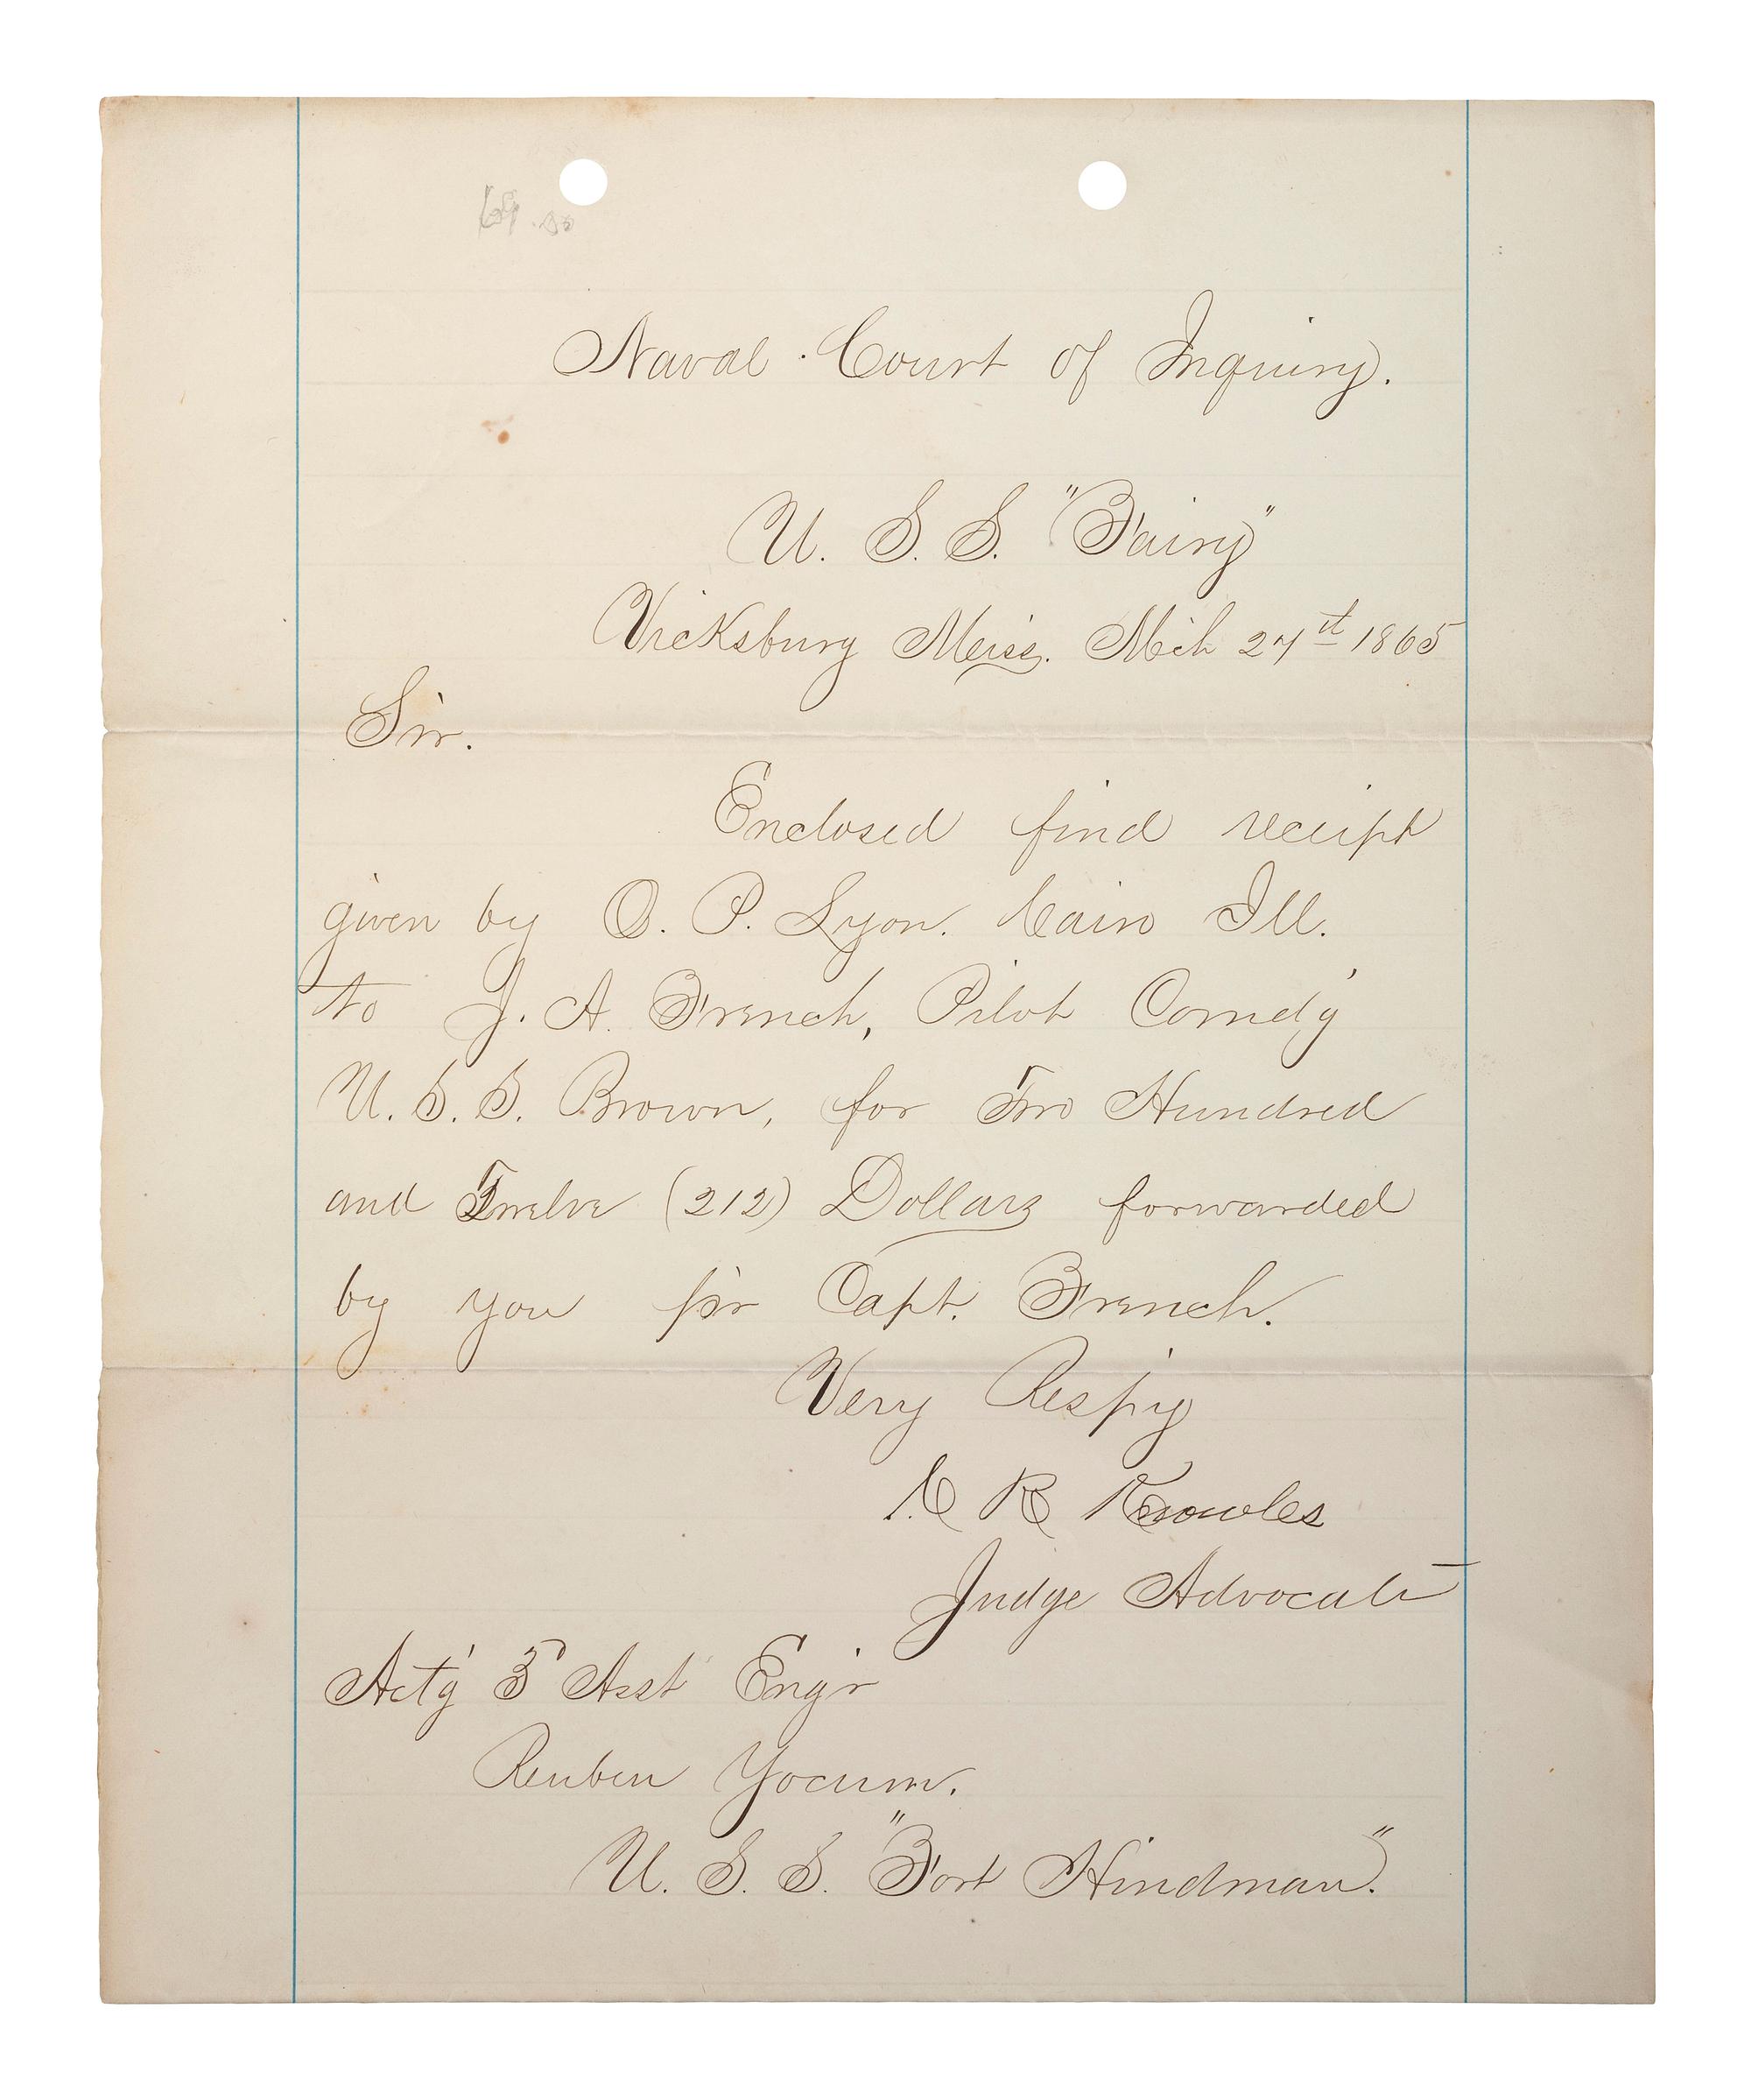 Naval Court of Inquiry.
U. S. S. "Fairy"
Vicksburg Miss. Mch 27th 1865
Sir.
Enclosed find receipt
given by O. P. Lyon. Cairo Ill.
to J. A. French, Pilot Comd'g
U. S. S. Brown, for Two Hundred
and Twelve (212) Dollars forwarded
by you for Capt. French.
Very Resp'y
C R Knowles
Judge Advocate
Act'g 3d Asst Eng'r
Reuben Yocum.
U. S. S. "Fort Hindman."